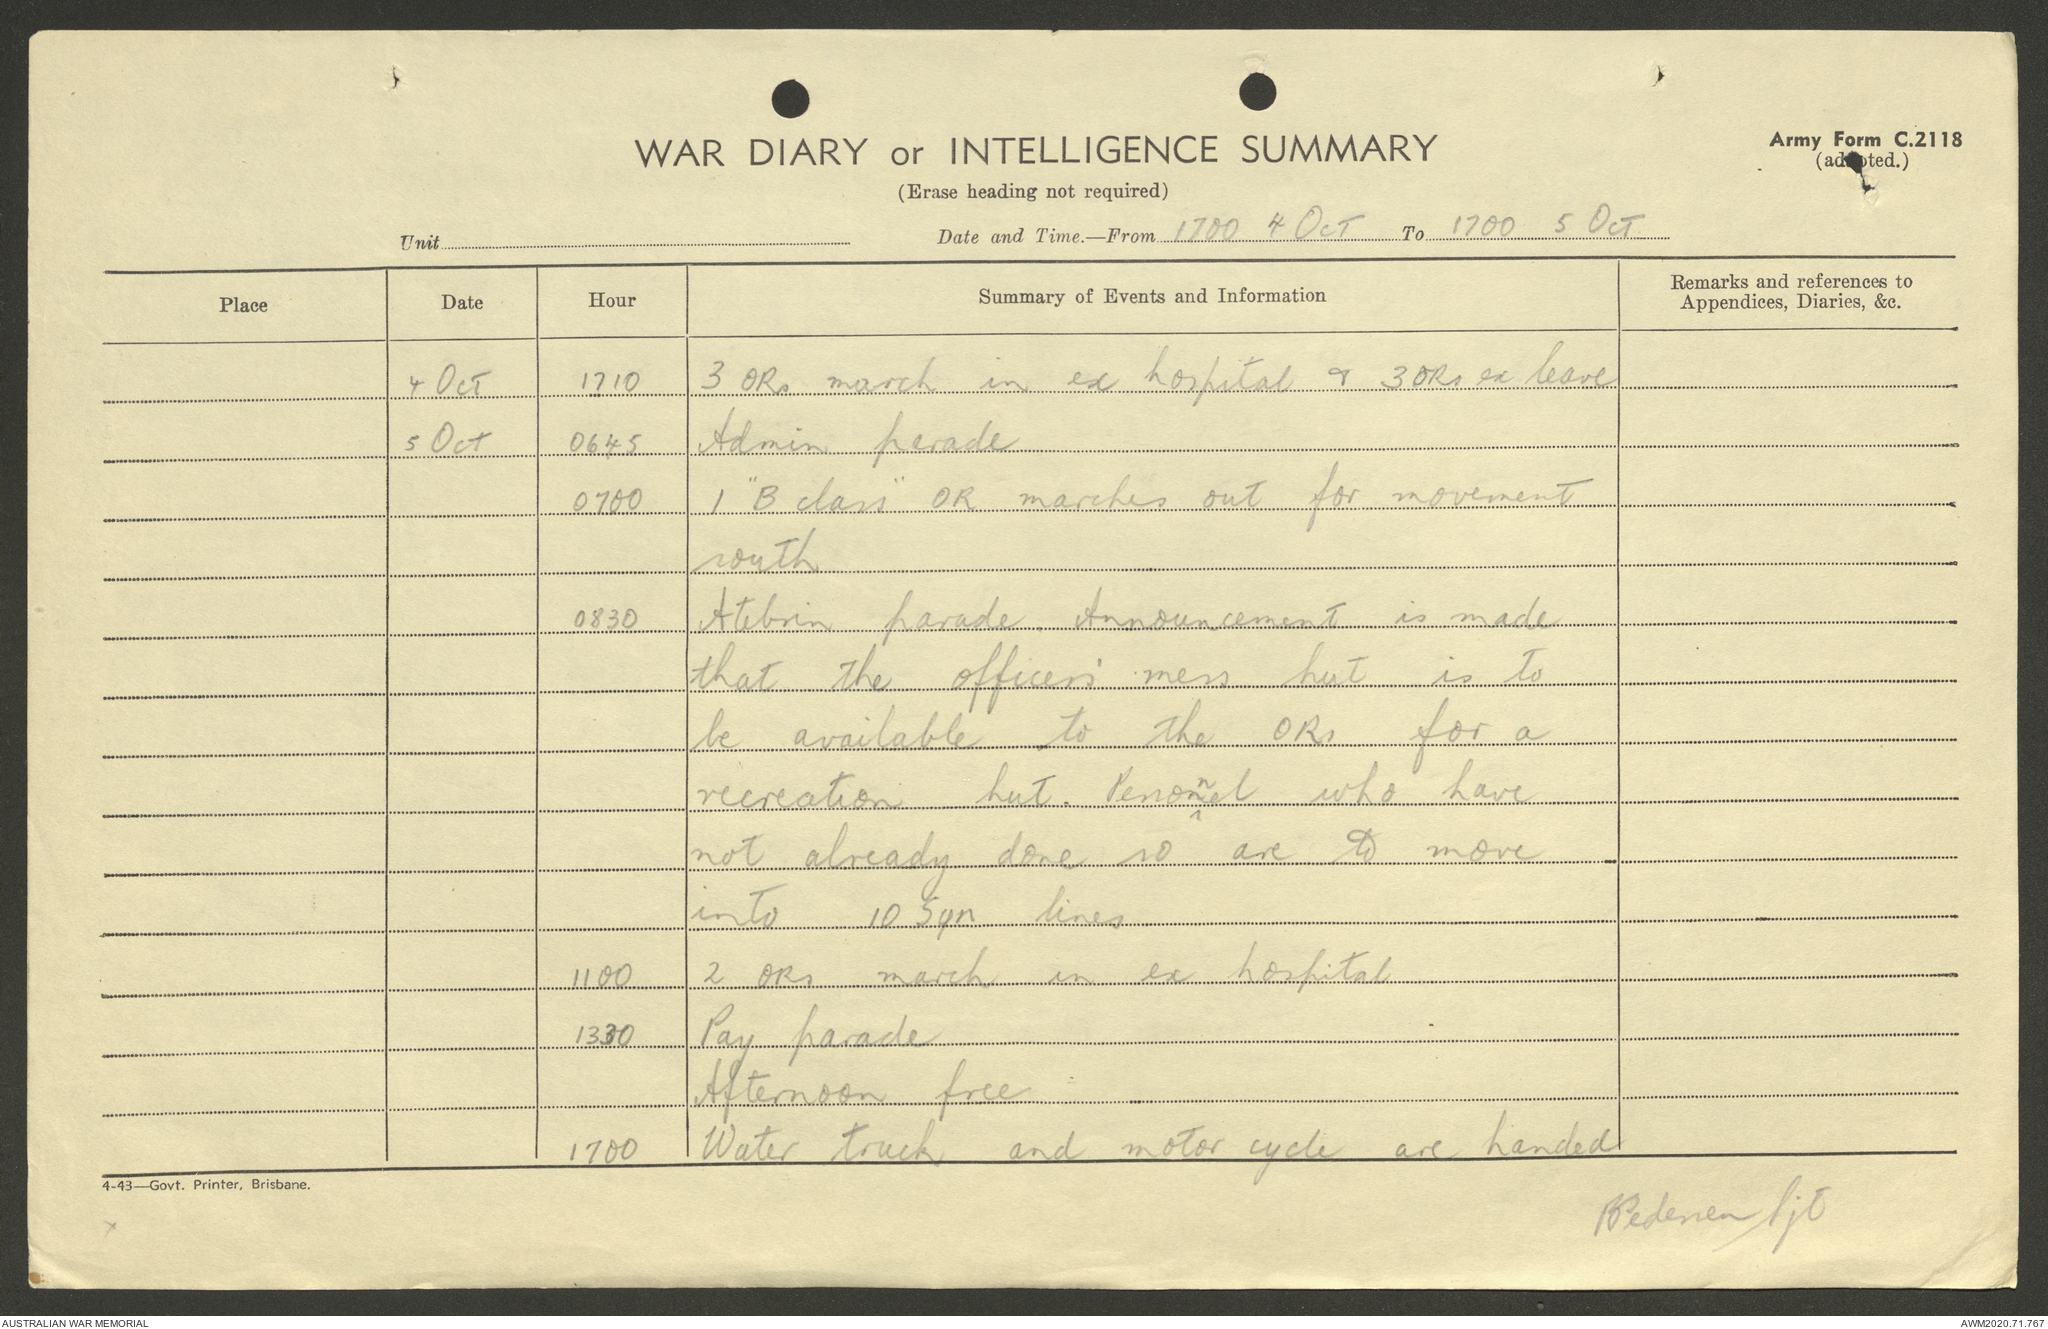 WAR DIARY or INTELLIGENCE SUMMARY
Army Form C.2118
(adopted.)
(Erase heading not required)
Unit Date and Time.—From 1700 4 Oct To 1700 5 Oct
Place Date Hour Summary of Events and Information Remarks and references to
Appendices, Diaries, &c.
4 Oct 1710 3 ORs march in ex hospital & 3 ORs ex leave
5 Oct 0645 Admin parade
0700 1 "B class" OR marches out for movement
south
0830 Atebrin parade. Announcement is made
that the officers' mess hut is to
be available to the ORs for a
recreation hut. Personnel who have
not already done so are to move
into 10 Sqn lines
1100 2 ORs march in ex hospital
1330 Pay parade
Afternoon free
1700 Water truck and motor cycle are handed
4-43—Govt. Printer, Brisbane.
Pedersen Sjt
AUSTRALIAN WAR MEMORIAL
AWM2020.71.767